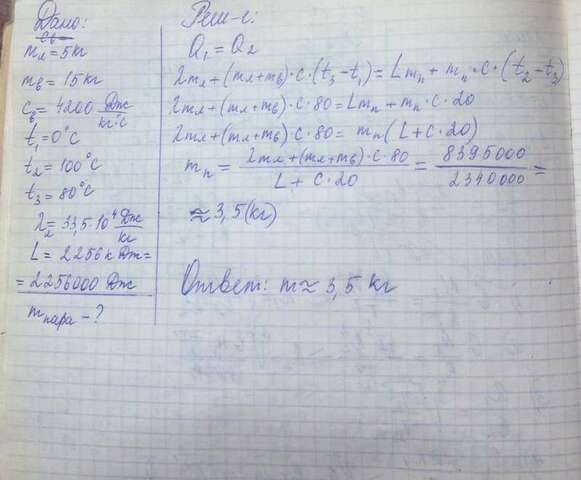 Дано:
mл = 5 кг
mв = 15 кг
cв = 4200 Дж/кг°C
t₁ = 0°C
t₂ = 100°C
t₃ = 80°C
λл = 33,5·10⁴ Дж/кг
L = 2256 к Дж =
= 2256000 Дж
mпара - ?
Реш-е:
Q₁ = Q₂
λmл + (mл + mв)·c·(t₃ - t₁) = Lmп + mп·c·(t₂ - t₃)
λmл + (mл + mв)·c·80 = Lmп + mп·c·20
λmл + (mл + mв)·c·80 = mп(L + c·20)
mп = λmл + (mл + mв)·c·80 / L + c·20 = 8395000 / 2340000 =
≈ 3,5 (кг)
Ответ: m ≈ 3,5 кг